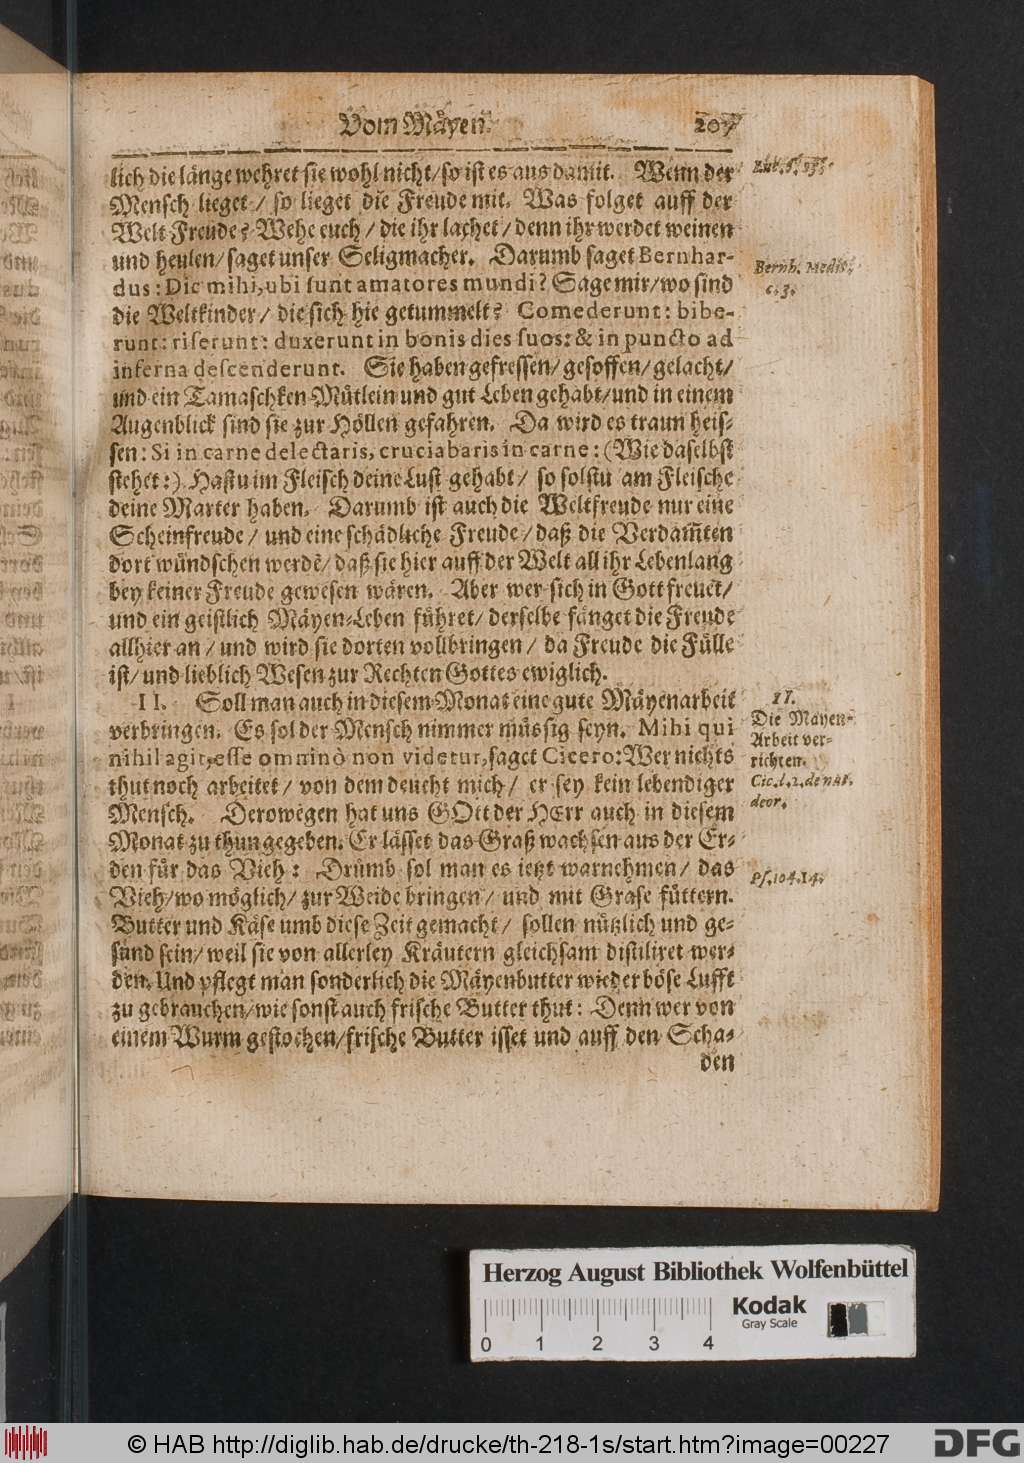 Vom Mäyen. 207
lich die länge wehret sie wohl nicht/ so ist es aus damit. Wenn der
Mensch lieget / so lieget die Freude mit. Was folget auff der
Welt Freude? Wehe euch / die ihr lachet / denn ihr werdet weinen
und heulen/ saget unser Seligmacher. Darumb saget Bernhar-
dus: Dic mihi, ubi sunt amatores mundi? Sage mir/ wo sind
die Weltkinder / die sich hie getummelt? Comederunt: bibe-
runt: riserunt: duxerunt in bonis dies suos: & in puncto ad
inferna descenderunt. Sie haben gefressen/ gesoffen/ gelacht/
und ein Tamaschken-Mütlein und gut Leben gehabt/ und in einem
Augenblick sind sie zur Höllen gefahren. Da wird es traun heis-
sen: Si in carne delectaris, cruciabaris in carne: (Wie daselbst
stehet:) Hastu im Fleisch deine Lust gehabt / so solstu am Fleische
deine Marter haben. Darumb ist auch die Weltfreude nur eine
Scheinfreude / und eine schädliche Freude / daß die Verdam̃ten
dort wündschen werdẽ/ daß sie hier auff der Welt all ihr Lebenlang
bey keiner Freude gewesen wären. Aber wer sich in Gott freuet/
und ein geistlich Mäyen-Leben führet/ derselbe fänget die Freude
allhier an / und wird sie dorten vollbringen / da Freude die Fülle
ist/ und lieblich Wesen zur Rechten Gottes ewiglich.
II. Soll man auch in diesem Monat eine gute Mäyenarbeit
verbringen. Es sol der Mensch nimmer müssig seyn. Mihi qui
nihil agit, esse omninò non videtur, saget Cicero: Wer nichts
thut noch arbeitet / von dem deucht mich / er sey kein lebendiger
Mensch. Derowegen hat uns GOtt der HErr auch in diesem
Monat zu thun gegeben. Er lässet das Graß wachsen aus der Er-
den für das Vieh: Drümb sol man es ietzt warnehmen / das
Vieh/ wo möglich/ zur Weide bringen / und mit Grase füttern.
Butter und Käse umb diese Zeit gemacht / sollen nützlich und ge-
sund sein/ weil sie von allerley Kräutern gleichsam distiliret wer-
den. Und pflegt man sonderlich die Mäyenbutter wieder böse Lufft
zu gebrauchen/ wie sonst auch frische Butter thut: Denn wer von
einem Wurm gestochen/ frische Butter isset und auff den Scha-
den
Bernh. Medit.
c. 3.
II.
Die Mayen-
Arbeit ver-
richten.
Cic. l. 2. de nat.
deor.
Ps. 104. 14.
Herzog August Bibliothek Wolfenbüttel
Kodak
Gray Scale
0 1 2 3 4
© HAB http://diglib.hab.de/drucke/th-218-1s/start.htm?image=00227
DFG